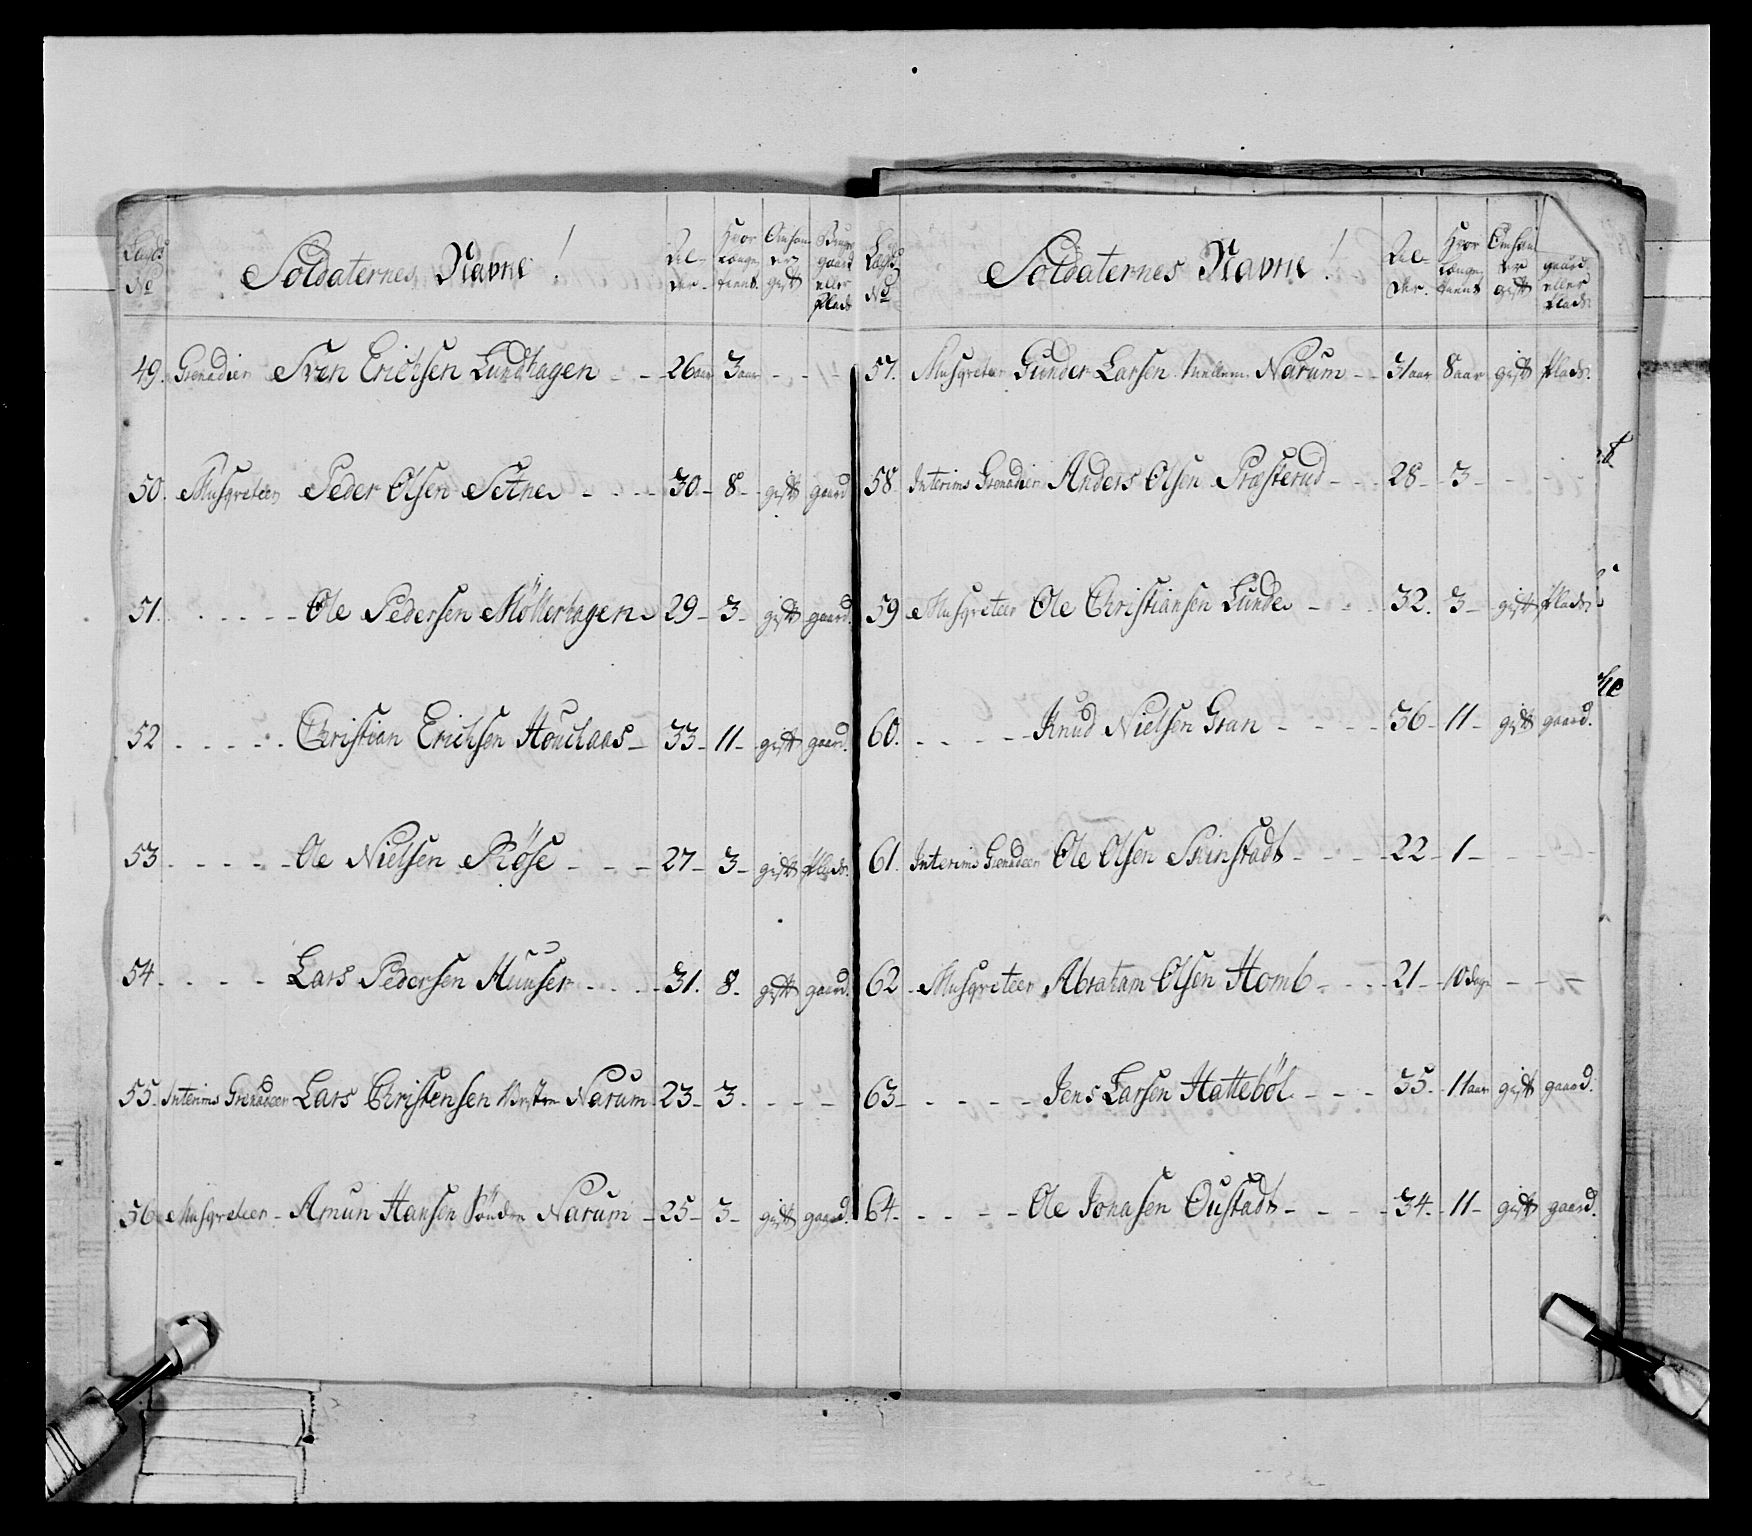 Lægds No Soldaternes Navne! Al- der. Hvor længe tient. Om han er gift Bruger gaard eller Plads
49. Grenadier Sven Erichsen Lundhagen - - 26 aar 3 aar - - -
50. Musqveteer Peder Olsen Setne - - - 30 - 8 - gift gaard
51. - - - - Ole Pedersen Möllerhagen 29 - 3 - gift gaard.
52 - - - - - Christian Erichsen Houchaas - 33 - 11 - gift gaard.
53 - - - - - Ole Nielsen Röse - - - 27 - 3 - gift Plads.
54. - - - - Lars Pedersen Huuser - - - 31. 8. gift gaard.
55. Interims Grenadeer Lars Christensen Vesten Narum 23 - 3. - - -
56 Musqveteer - Amun Hansen Sönden Narum - 25 - 3 - gift gaard.
Lægds No Soldaternes Navne! Al- der. Hvor længe tient Om han er gift gaard eller Plads.
57. Musqveteer Gunder Larsen mellem Narum - - 31 aar 8 aar gift Plads.
58. Interims Grenadier Anders Olsen Præsterud - - - 28 - 3 - - - -
59 Musqveteer Ole Christiansen Lunde - - - 32. 3 - gift Plads
60. - - - - - Knud Nielsen Gran - - - - 36 - 11 - gift gaard.
61. Interims Grenadeer Ole Olsen Skinstadt - - - - 22 - 1 - - - -
62 - Musqveteer Abraham Olsen Homb - - - - 21 - 10 dage - - -
63 - - - - - - Jens Larsen Hatteböl - - - 35. 11 aar gift gaard.
64 - - - - - Ole Jonasen Oustadt - - - - 34. - 11 - gift gaard.